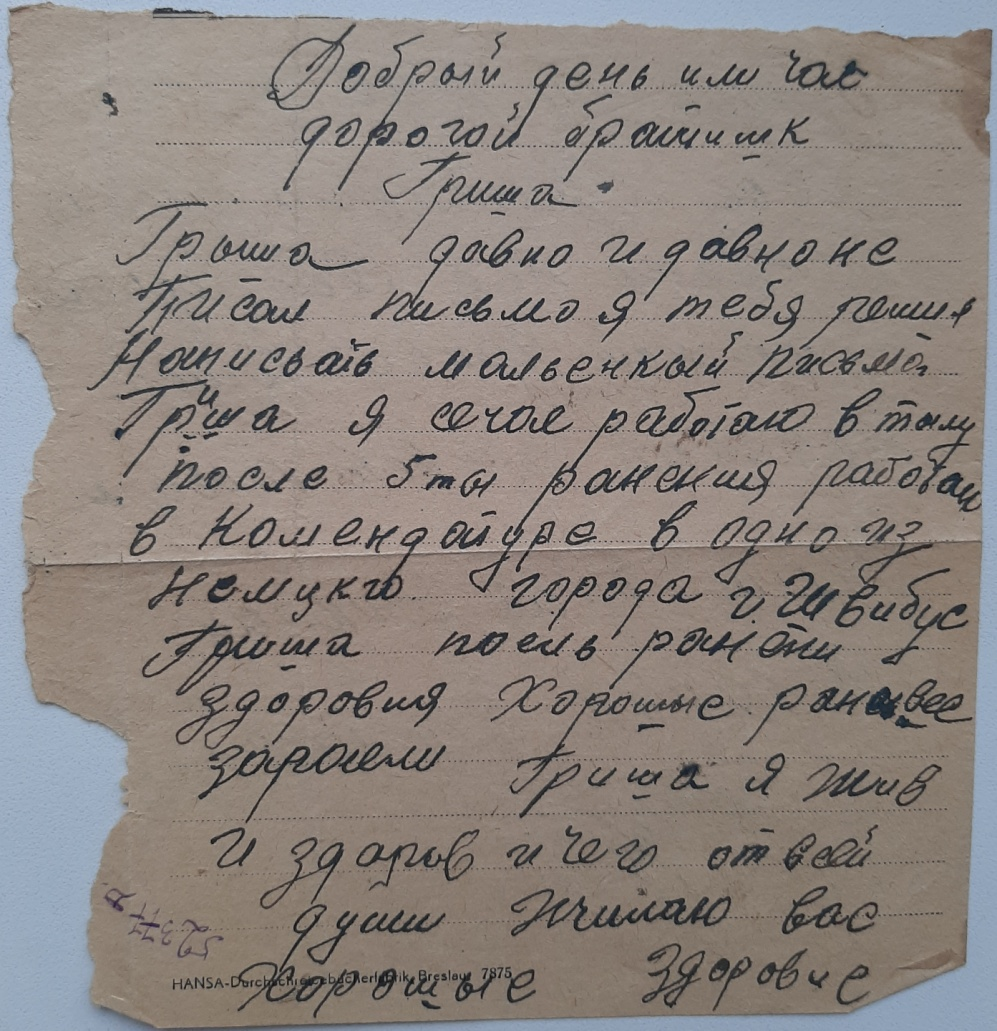 Добрый день или час
дорогой братишк
Гриша
Грыша давно и давно не
Писал письмо я тебя решил
Написвать мальенкый письма
Гриша я сечас работаю в тылу
после 5ты ранения работаю
в Комендатуре в одно из
немцкго города г. Швибус
Гриша посль ранени
здоровия Хорошые раны все
заросли Гриша я жив
и здоров и чего от всей
души Жилаю вас
Хорошые Здоровие
52377
HANSA-Durchschreibebücherfabrik, Breslau 7875